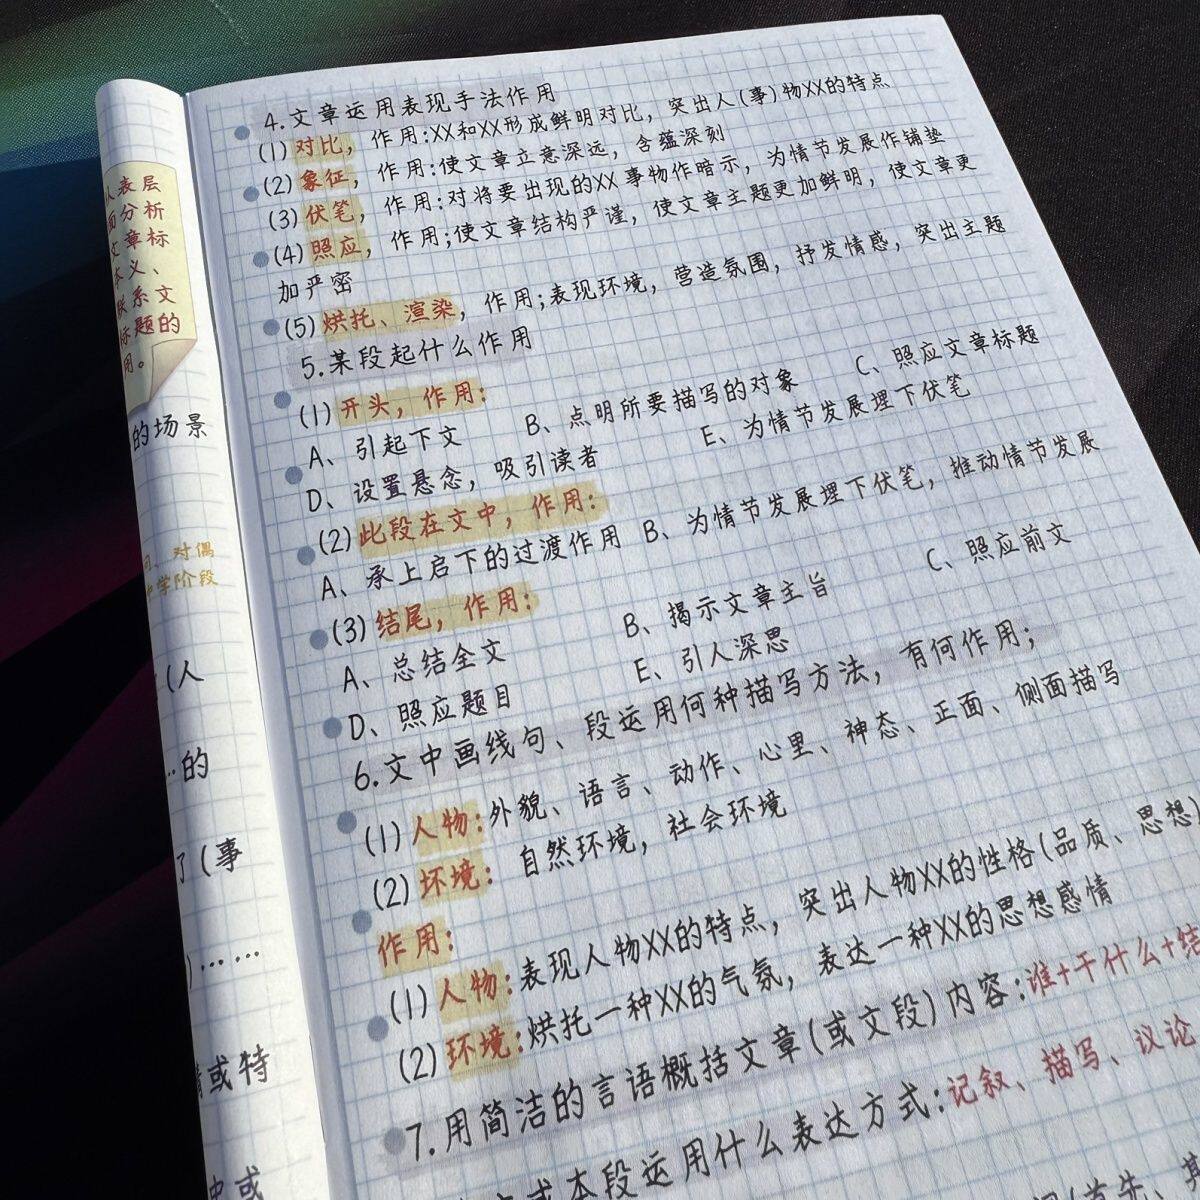 4.文章运用表现手法作用
(1)对比，作用:XX和XX形成鲜明对比，突出人(事)物XX的特点
(2)象征，作用:使文章立意深远，含蕴深刻
(3)伏笔，作用:对将要出现的XX事物作暗示，为情节发展作铺垫
(4)照应，作用;使文章结构严谨，使文章主题更加鲜明，使文章更
加严密
(5)烘托、渲染，作用;表现环境，营造氛围，抒发情感，突出主题
5.某段起什么作用
(1)开头，作用:
A、引起下文 B、点明所要描写的对象 C、照应文章标题
D、设置悬念，吸引读者 E、为情节发展埋下伏笔
(2)此段在文中，作用:
A、承上启下的过渡作用 B、为情节发展埋下伏笔，推动情节发展
C、照应前文
(3)结尾，作用:
A、总结全文 B、揭示文章主旨
D、照应题目 E、引人深思
6.文中画线句、段运用何种描写方法，有何作用;
(1)人物:外貌、语言、动作、心里、神态、正面、侧面描写
(2)环境:自然环境，社会环境
作用:
(1)人物:表现人物XX的特点，突出人物XX的性格(品质、思想)
(2)环境:烘托一种XX的气氛，表达一种XX的思想感情
7.用简洁的言语概括文章(或文段)内容:谁+干什么+结
本段运用什么表达方式:记叙、描写、议论
表层
面分析
文章标
本义、
联系文
标题的
用。
的场景
、对偶
学阶段
(人
…的
了(事
)……
或特
或